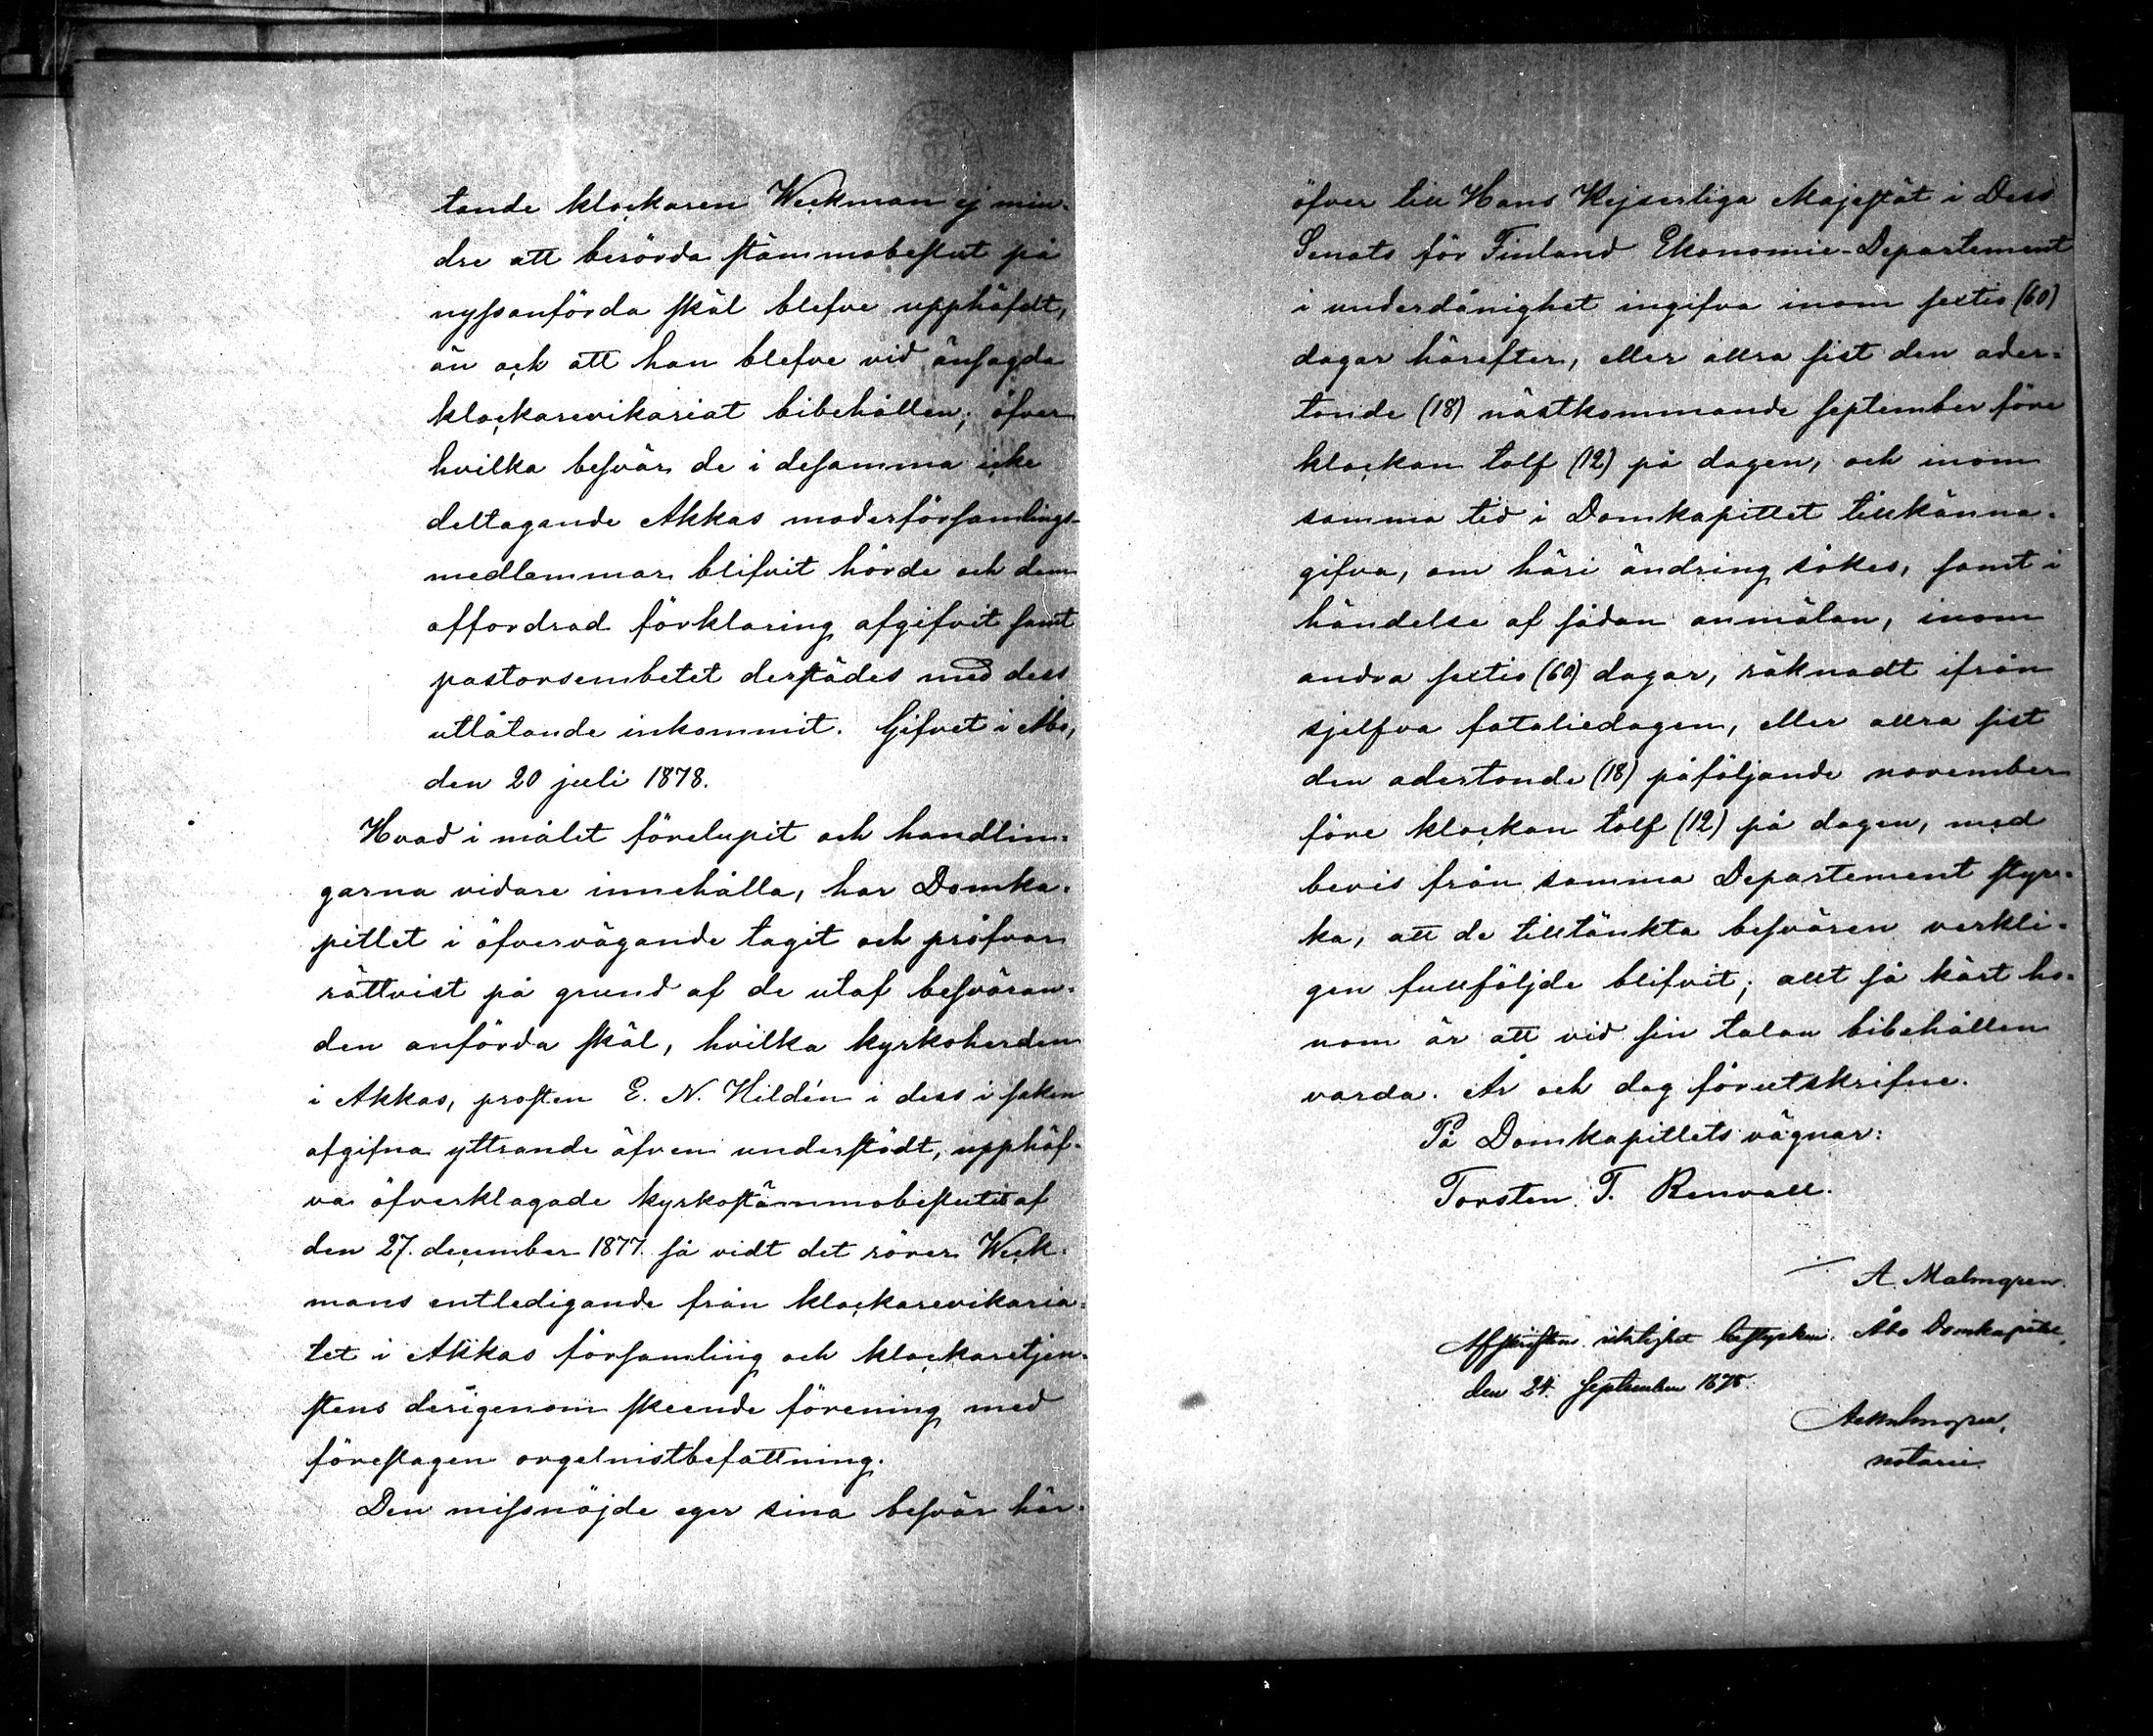 tande klockaren Weckman ej min-
dre att berörda stämmobeslut på
nyssanförda skäl blefve upphäfdt,
än ock att han blefve vid ansagda
klockarevikariat bibehållen; öfver
hvilka besvär de i desamma icke
deltagande Akkas moderförsamlings-
medlemmar blifvit hörde och dem
affordrad förklaring afgifvit samt
pastorsembetet derstädes med dess
utlåtande inkommit. Gifvet i Åbo,
den 20 juli 1878.
Hvad i målet förelupit och handlin-
garna vidare innehålla, har Domka-
pitlet i öfvervägande tagit och pröfvar
rättvist på grund af de utaf besväran-
den anförda skäl, hvilka kyrkoherden
i Akkas, prosten E. N. Hildén i dess i saken
afgifna yttrande äfven understödt, upphäf-
va öfverklagade kyrkostämmobeslutet af
den 27. december 1877 så vidt det rörer Weck-
mans entledigande från klockarevikaria-
tet i Akkas församling och klockaretjen-
stens derigenom skeende förening med
föreslagen orgelnistbefattning.
Den missnöjde eger sina besvär här-
öfver till Hans Kejserliga Majestät i Dess
Senats för Finland Ekonomie-Departement
i underdånighet ingifva inom sextio (60)
dagar härefter, eller allra sist den ader-
tonde (18) nästkommande september före
klockan tolf (12) på dagen, och inom
samma tid i Domkapitlet tillkänna-
gifva, om häri ändring sökes, samt i
händelse af sådan anmälan, inom
andra sextio (60) dagar, räknadt ifrån
sjelfva fataliedagen, eller allra sist
den adertonde (18) påföljande november
före klockan tolf (12) på dagen, med
bevis från samma Departement styr-
ka, att de tilltänkta besvären verkli-
gen fullföljde blifvit; allt så kärt ho-
nom är att vid sin talan bibehållen
varda. År och dag förutskrifne.
På Domkapitlets vägnar:
Torsten T. Renvall.
A. Malmgren.
Afskriftens riktighet bestyrkes. Åbo Domkapitel,
den 24. September 1878.
A Malmgren,
notarie.